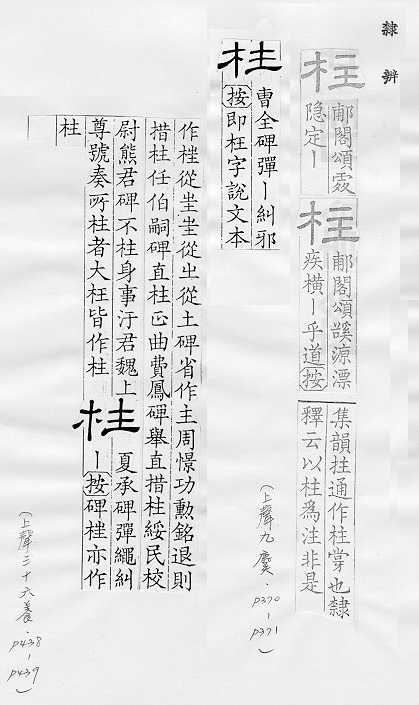 隸辨
柱
郙閣頌處
隐定丨
柱
郙閣頌蹊源漂
疾横丨乎道按
集韻拄通作柱掌也隸
釋云以柱爲注非是
(上聲九麌．P370-P371)
柱
曹全碑彈丨糾邪
按即枉字說文本
作𣒫從㞷㞷從㞢從土碑省作主周憬功勲銘退則
措柱任伯嗣碑直柱正曲費鳳碑舉直措柱綏民校
尉熊君碑不柱身事汙君魏上
尊號奏所柱者大枉皆作柱
柱
夏承碑彈繩糾
丨按碑𣒫亦作
柱
(上聲三十六養．P438-P439)